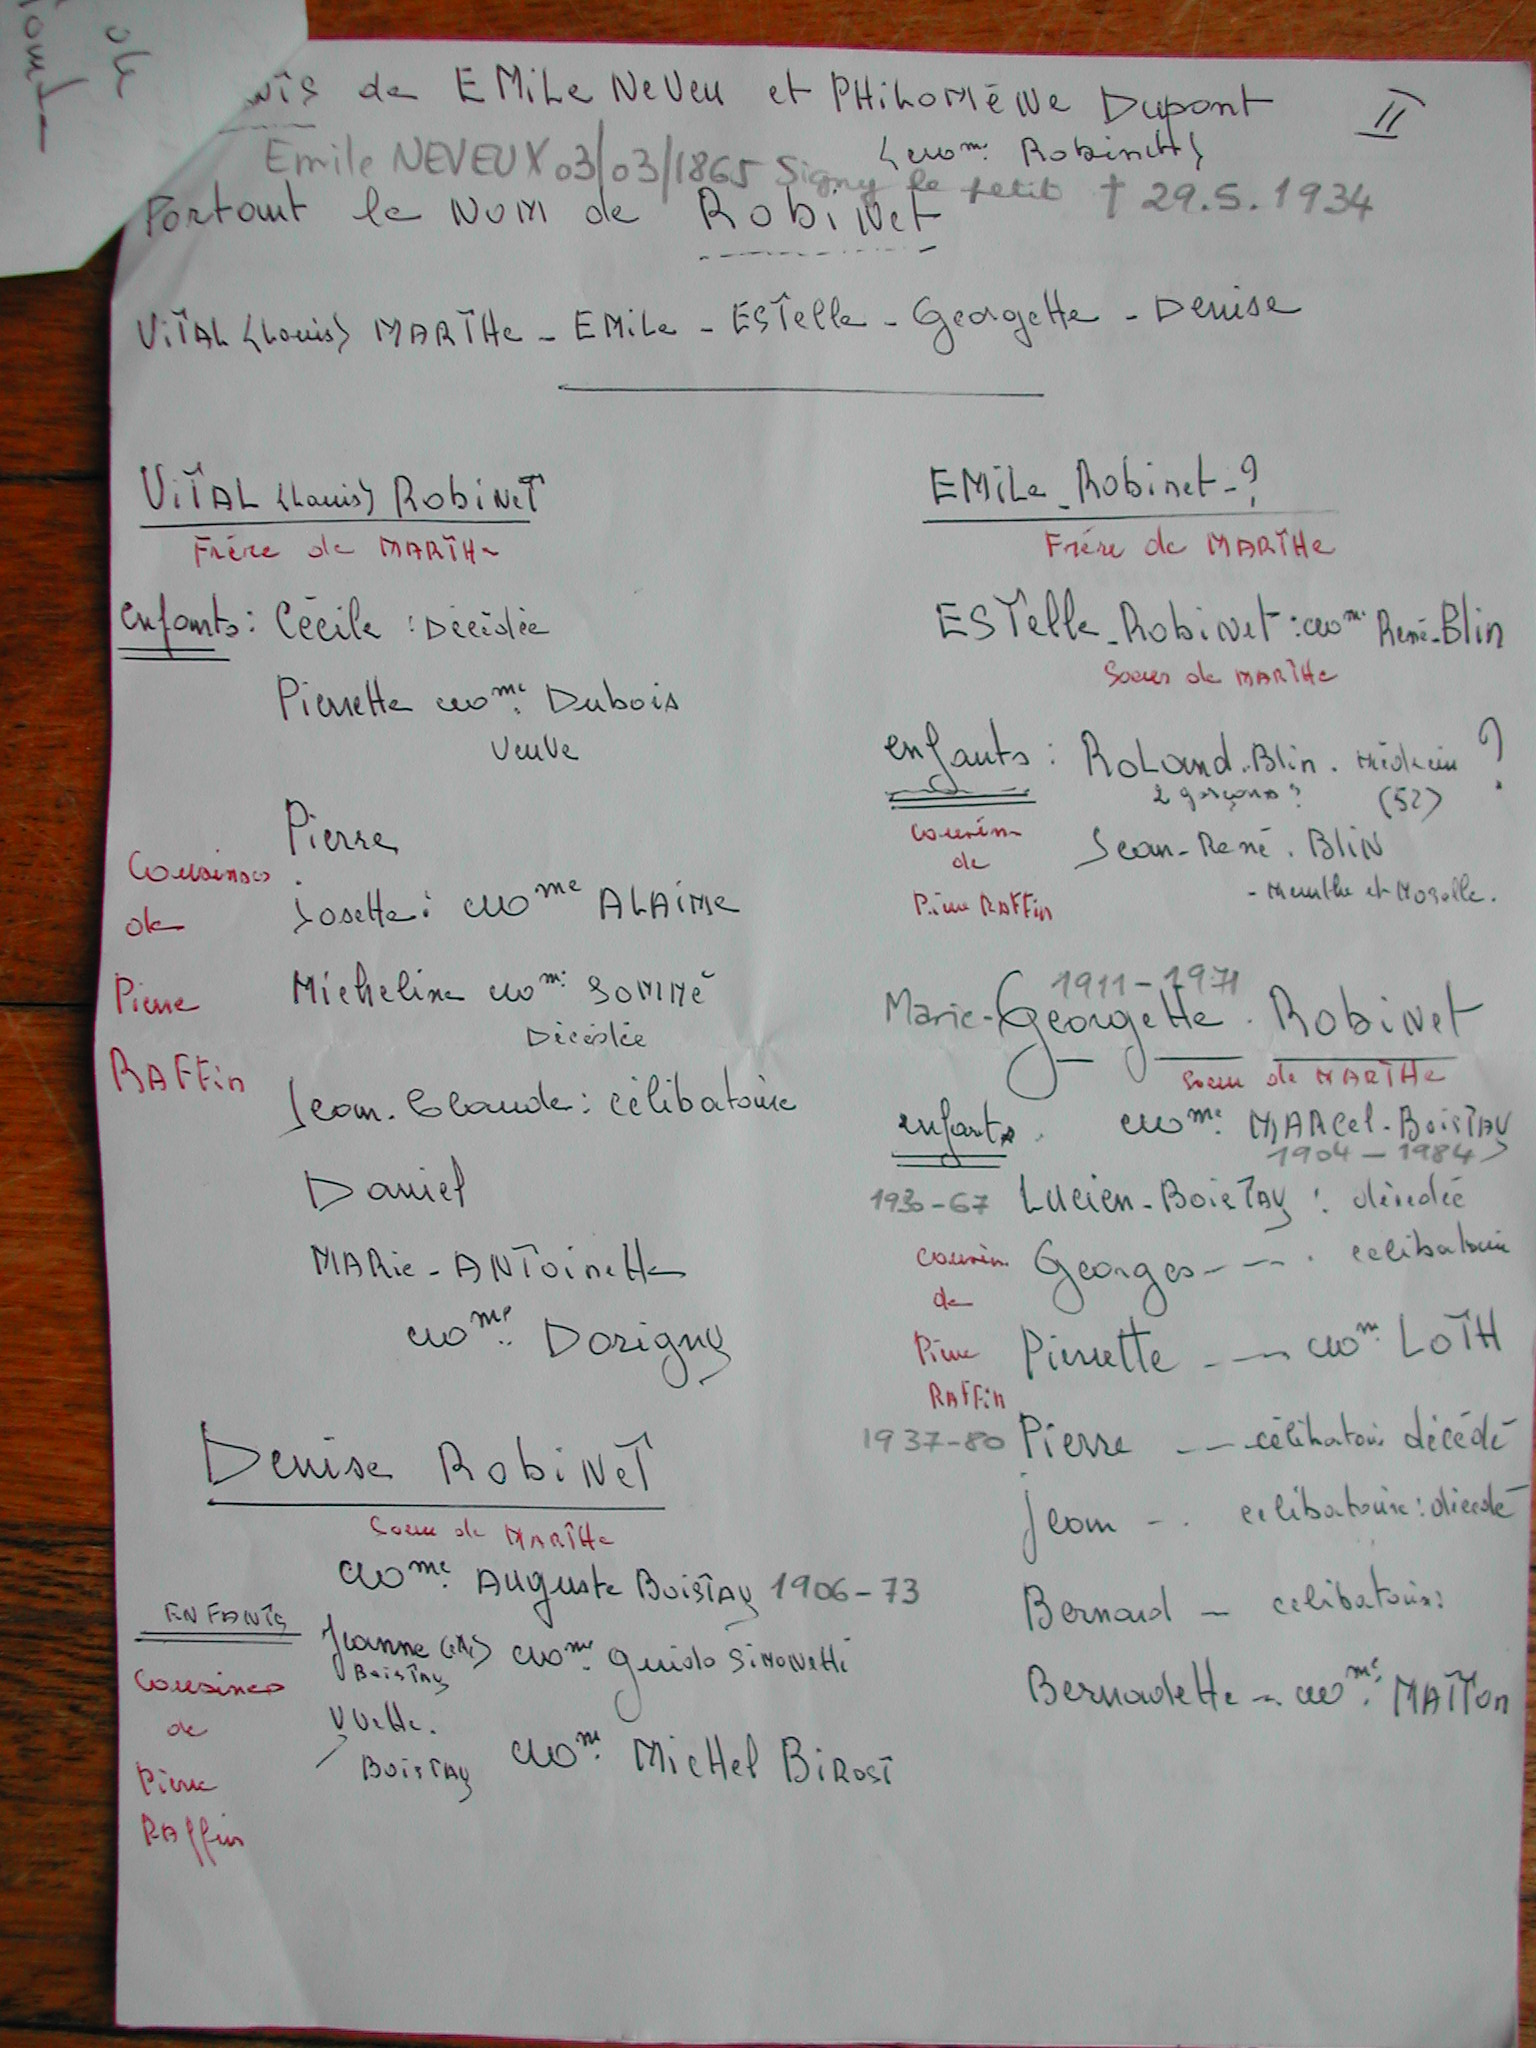 de
de EMiLe NeVeu et PHiLOMéNe Dupont
II
<épo^me. Robinet>
Emile NEVEUX 03/03/1865 Signy le petit † 29.5.1934
Portant le NOM de RobiNet
ViTAL <Louis> MARTHe - EMiLe - ESTelle - Georgette - Denise
ViTAL <Louis> RobiNeT
Frére de MARTHe
enfants : Cécile : Décédée
Pierrette épo^me. Dubois
Veuve
Pierre
Josette : épo^me ALAiMe
Micheline épo^m. SOMMé
Décédée
Jean-Claude : célibataire
Daniel
MARie-ANToinette
épo^me. Dorigny
Cousines
de
Pierre
RAFFin
Denise RobiNeT
Soeur de MARTHe
épo^me. Auguste BoisTAy 1906-73
ENFANTS
Jeanne épo^me. guido SiMoNetti
BoisTAy
Yvette.
BoisTAy épo^me. MicHel BiRosT
Cousines
de
Pierre
RAffin
EMiLe-Robinet-?
Frére de MARTHe
ESTelle-RobiNeT : épo^me. René-Blin
Soeur de MARTHe
enfants : RoLand.Blin. Médecin ?
2 garçons ? (52)
Jean-René. BLiN
- Meurthe et Moselle.
Cousin
de
Pierre RAFFin
1911-1971
Marie-Georgette. RobiNet
Soeur de MARTHe
enfants. épo^me. MARCel-BoisTAy
1904-1984
1930-67 Lucien-BoisTAy : décédé
Georges - - - . célibataire
Pierrette - - - épo^m. LOTH
1937-80 Pierre - - - célibataire décédé
jean - . célibataire : décédé
Bernard - célibataire :
Bernadette - épo^me. MATTon
Cousin
de
Pierre
RAFFin